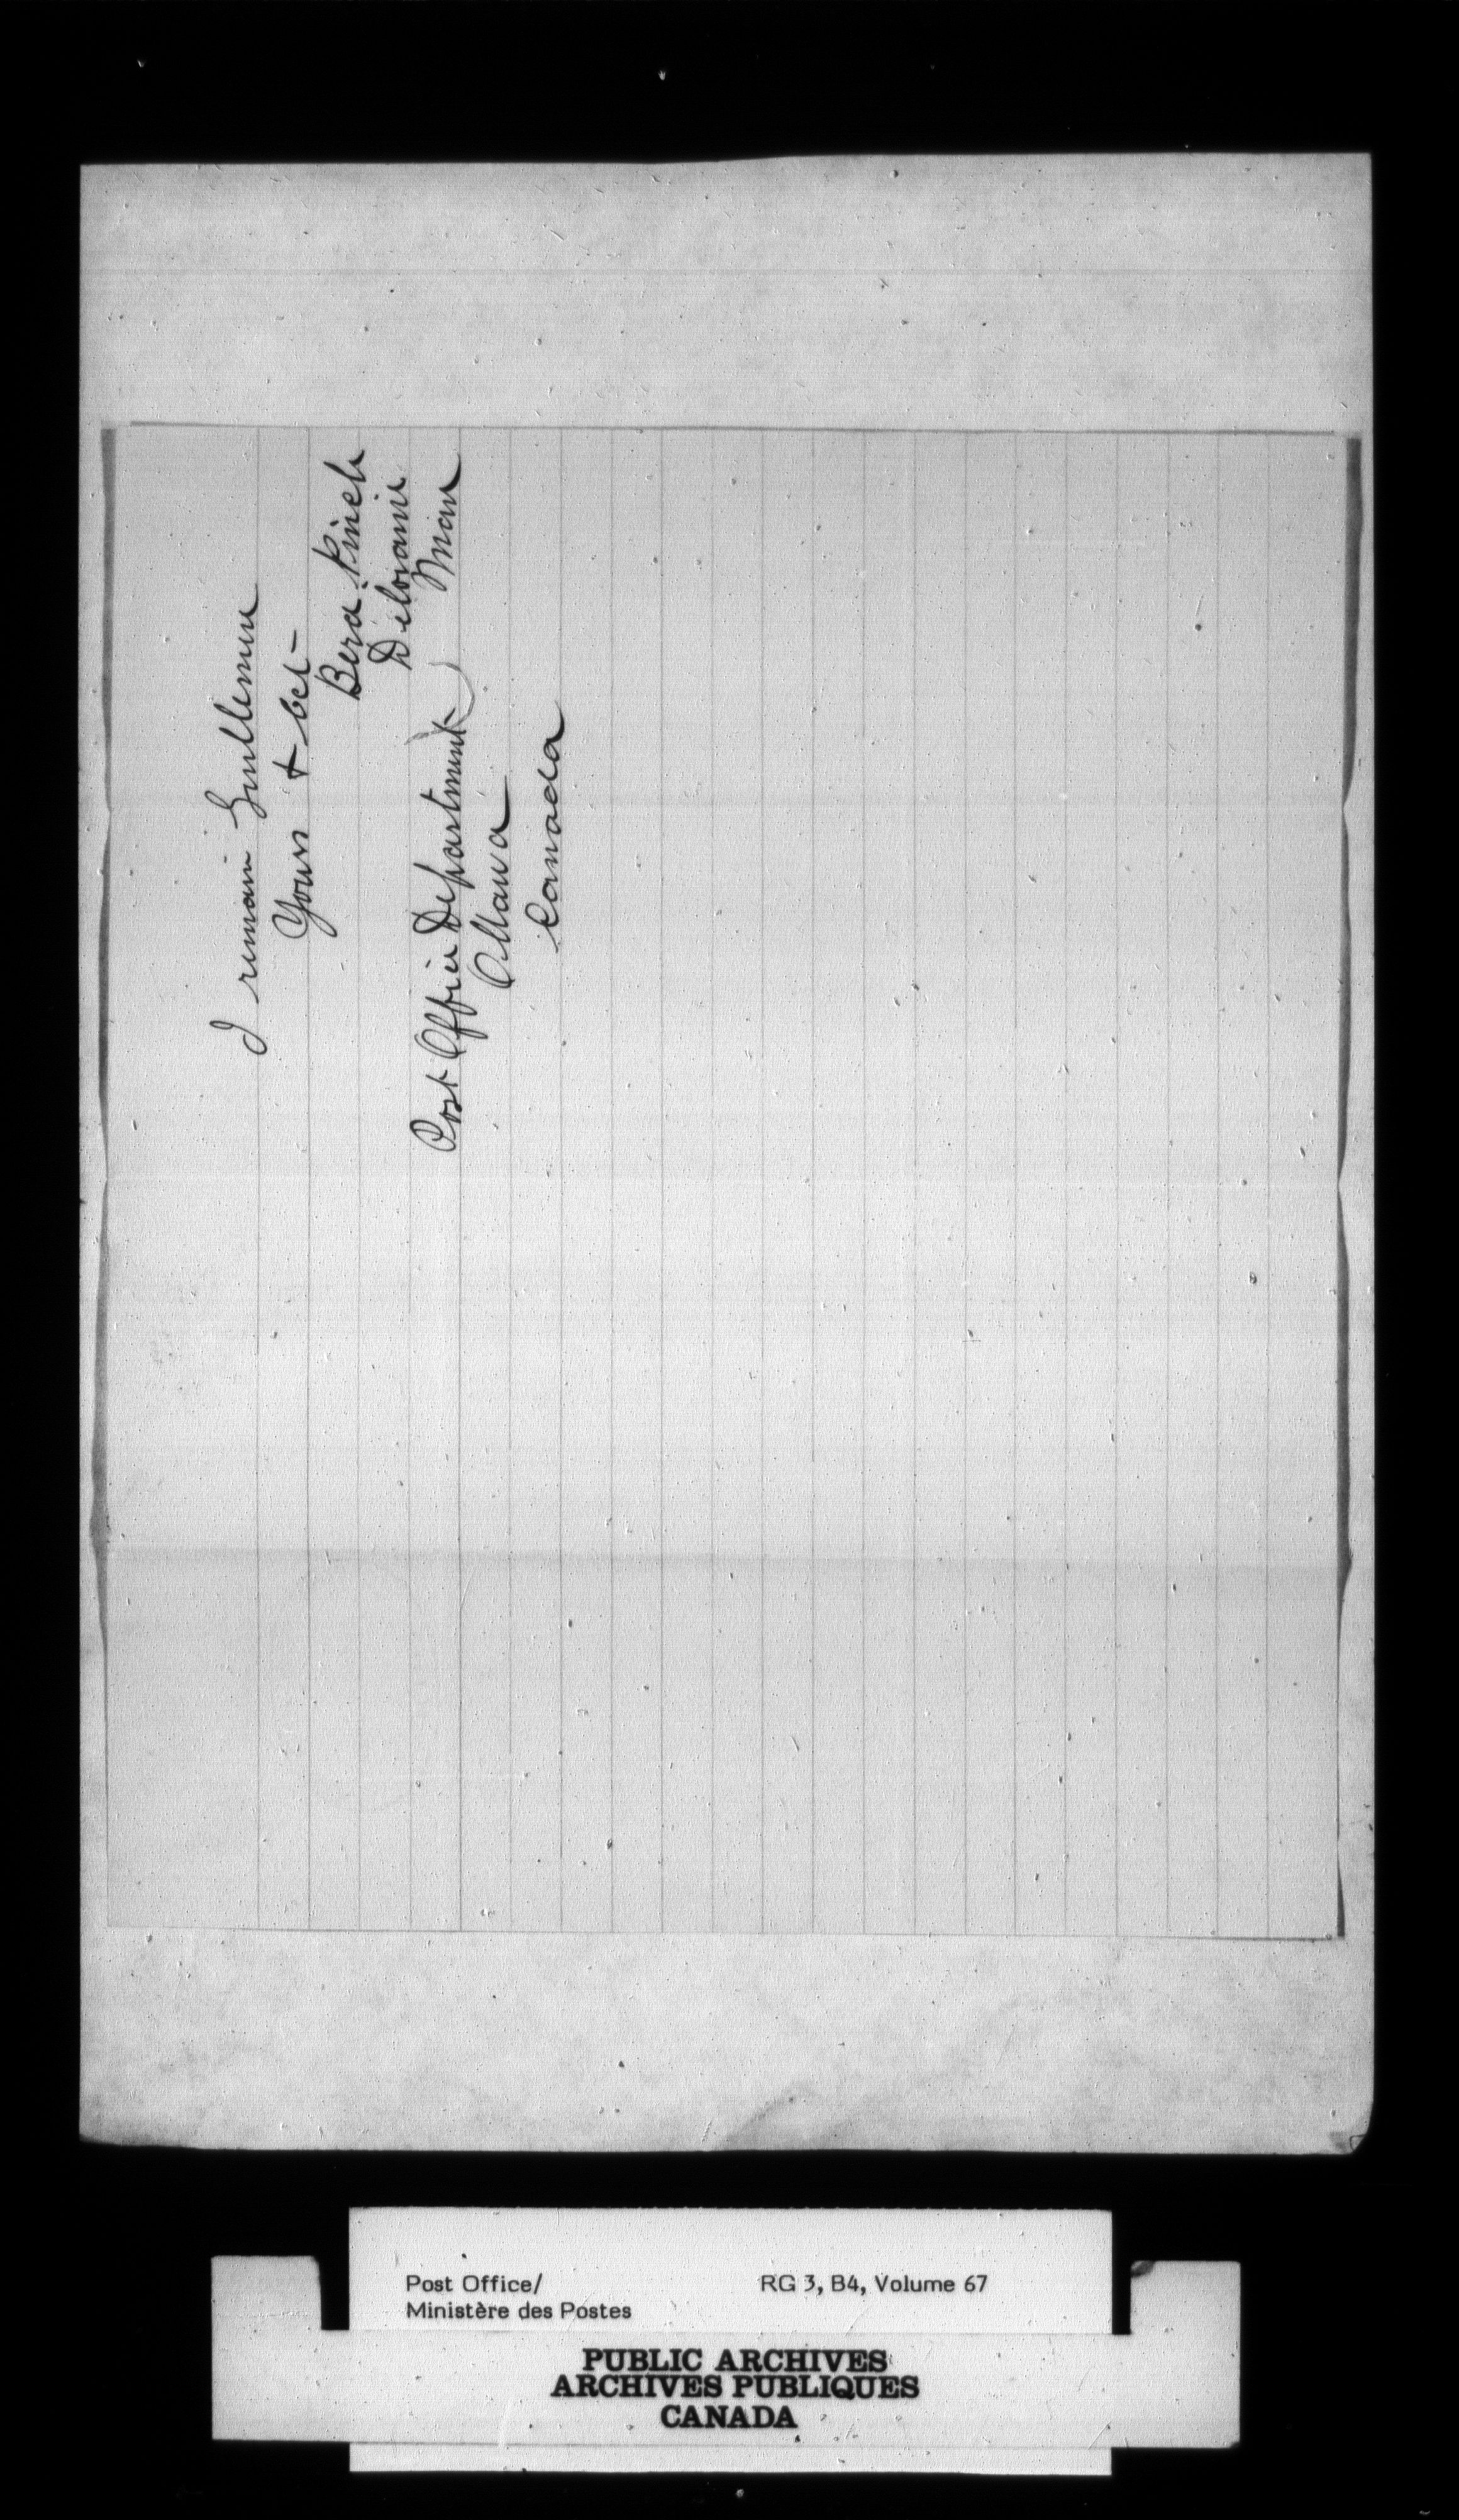 I remain Gentlemen
Yours & Cet
Bera Pineh
Deloraine
Man
Post Office Department
Ottawa
Canada
Post Office/
Ministère des Postes
RG 3, B4, Volume 67
PUBLIC ARCHIVES
ARCHIVES PUBLIQUES
CANADA